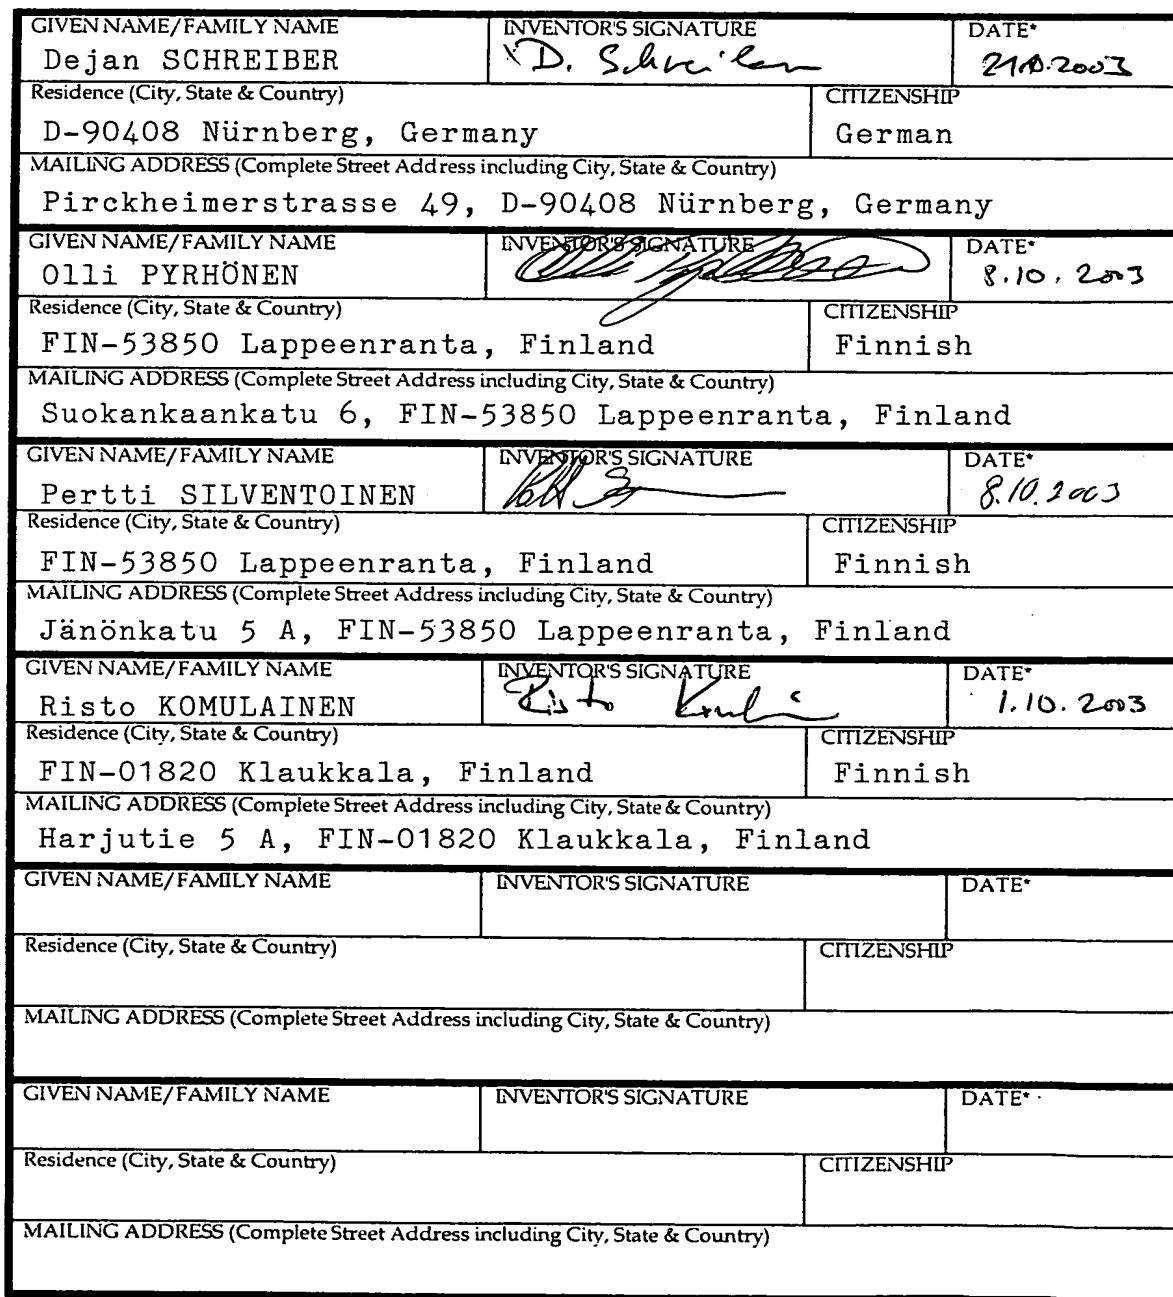 GIVEN NAME/FAMILY NAME INVENTOR'S SIGNATURE DATE*
Dejan SCHREIBER D. Schreiber 21.10.2003
Residence (City, State & Country) CITIZENSHIP
D-90408 Nürnberg, Germany German
MAILING ADDRESS (Complete Street Address including City, State & Country)
Pirckheimerstrasse 49, D-90408 Nürnberg, Germany
GIVEN NAME/FAMILY NAME INVENTOR'S SIGNATURE DATE*
Olli PYRHÖNEN 8.10.2003
Residence (City, State & Country) CITIZENSHIP
FIN-53850 Lappeenranta, Finland Finnish
MAILING ADDRESS (Complete Street Address including City, State & Country)
Suokankaankatu 6, FIN-53850 Lappeenranta, Finland
GIVEN NAME/FAMILY NAME INVENTOR'S SIGNATURE DATE*
Pertti SILVENTOINEN 8.10.2003
Residence (City, State & Country) CITIZENSHIP
FIN-53850 Lappeenranta, Finland Finnish
MAILING ADDRESS (Complete Street Address including City, State & Country)
Jänönkatu 5 A, FIN-53850 Lappeenranta, Finland
GIVEN NAME/FAMILY NAME INVENTOR'S SIGNATURE DATE*
Risto KOMULAINEN Risto 1.10.2003
Residence (City, State & Country) CITIZENSHIP
FIN-01820 Klaukkala, Finland Finnish
MAILING ADDRESS (Complete Street Address including City, State & Country)
Harjutie 5 A, FIN-01820 Klaukkala, Finland
GIVEN NAME/FAMILY NAME INVENTOR'S SIGNATURE DATE*
Residence (City, State & Country) CITIZENSHIP
MAILING ADDRESS (Complete Street Address including City, State & Country)
GIVEN NAME/FAMILY NAME INVENTOR'S SIGNATURE DATE*
Residence (City, State & Country) CITIZENSHIP
MAILING ADDRESS (Complete Street Address including City, State & Country)